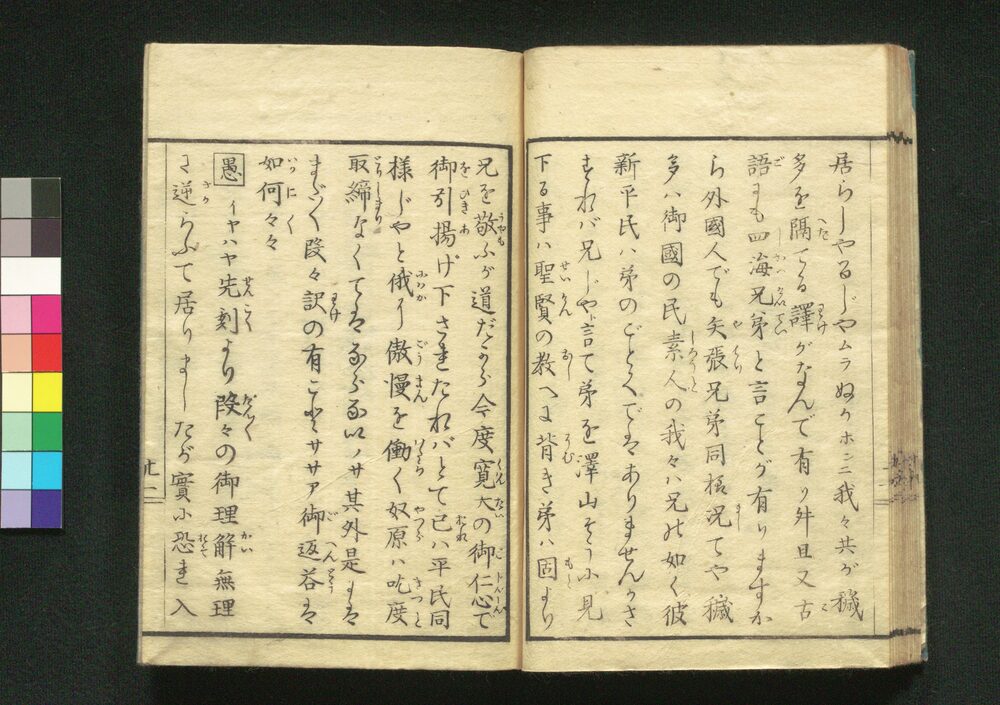 居らしやるじやムラぬカホンニ我々共が穢
多を隔てる譯がなんで有り升且又古
語にも四海兄弟と言ことが有りますか
ら外國人でも矢張兄弟同様况てや穢
多ハ御國の民素人の我々ハ兄の如く彼
新平民ハ弟のごとくでハありませんかさ
すれバ兄じやト言て弟を澤山そうに見
下る事ハ聖賢の教へに背き弟ハ固より
兄を敬ふが道だから今度寛大の御仁心で
御引揚げ下されたれバとて己ハ平民同
様じやと俄に傲慢を働く奴原ハ吃度
取締なくてハならないノサ其外是にハ
まだ〱段々訳の有ことサササア御返答ハ
如何々々
愚 イヤハヤ先刻より段々の御理解無理
に逆らふて居りましたが實に恐れ入
廿一